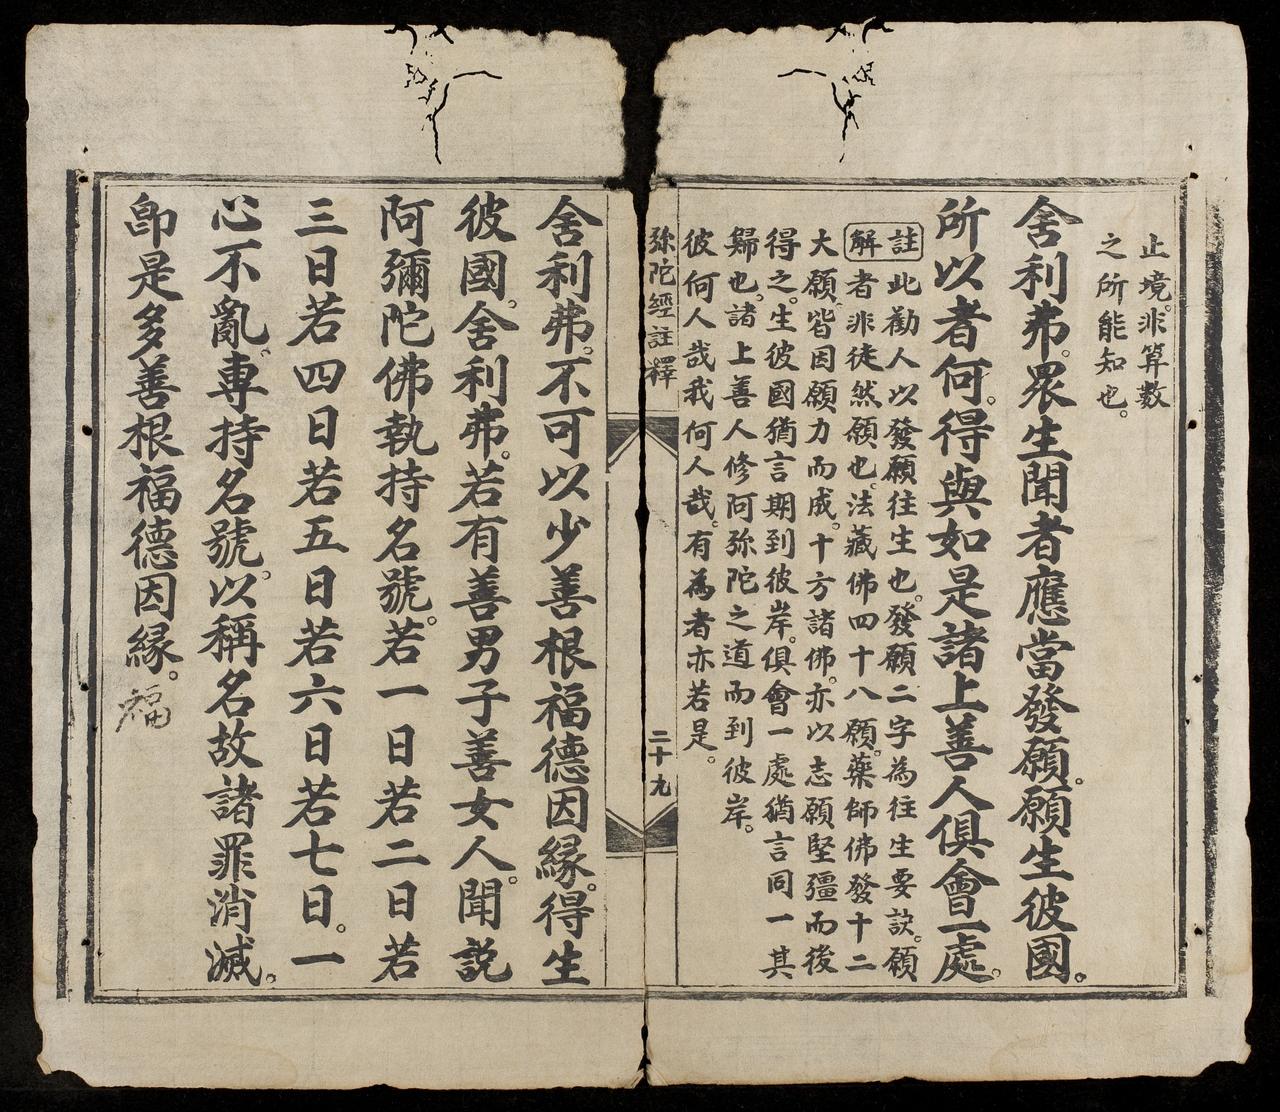 止境。非算數
之所能知也。
舍利弗。眾生聞者應當發願。願生彼國。
所以者何。得與如是諸上善人俱會一處。
註 此勸人以發願往生也。發願二字為往生要訣。願
解 者非徒然願也。法藏佛四十八願。藥師佛發十二
大願。皆因願力而成。十方諸佛。亦以志願堅彊而後
得之。生彼國猶言期到彼岸。俱會一處猶言同一其
歸也。諸上善人修阿弥陀之道而到彼岸。
彼何人哉我何人哉。有為者亦若是。
弥陀經註釋
二十九
舍利弗。不可以少善根福德因緣。得生
彼國。舍利弗。若有善男子善女人。聞説
阿彌陀佛執持名號。若一日若二日若
三日若四日若五日若六日若七日。一
心不亂。專持名號。以稱名故諸罪消滅。
卽是多善根福德因緣。
福